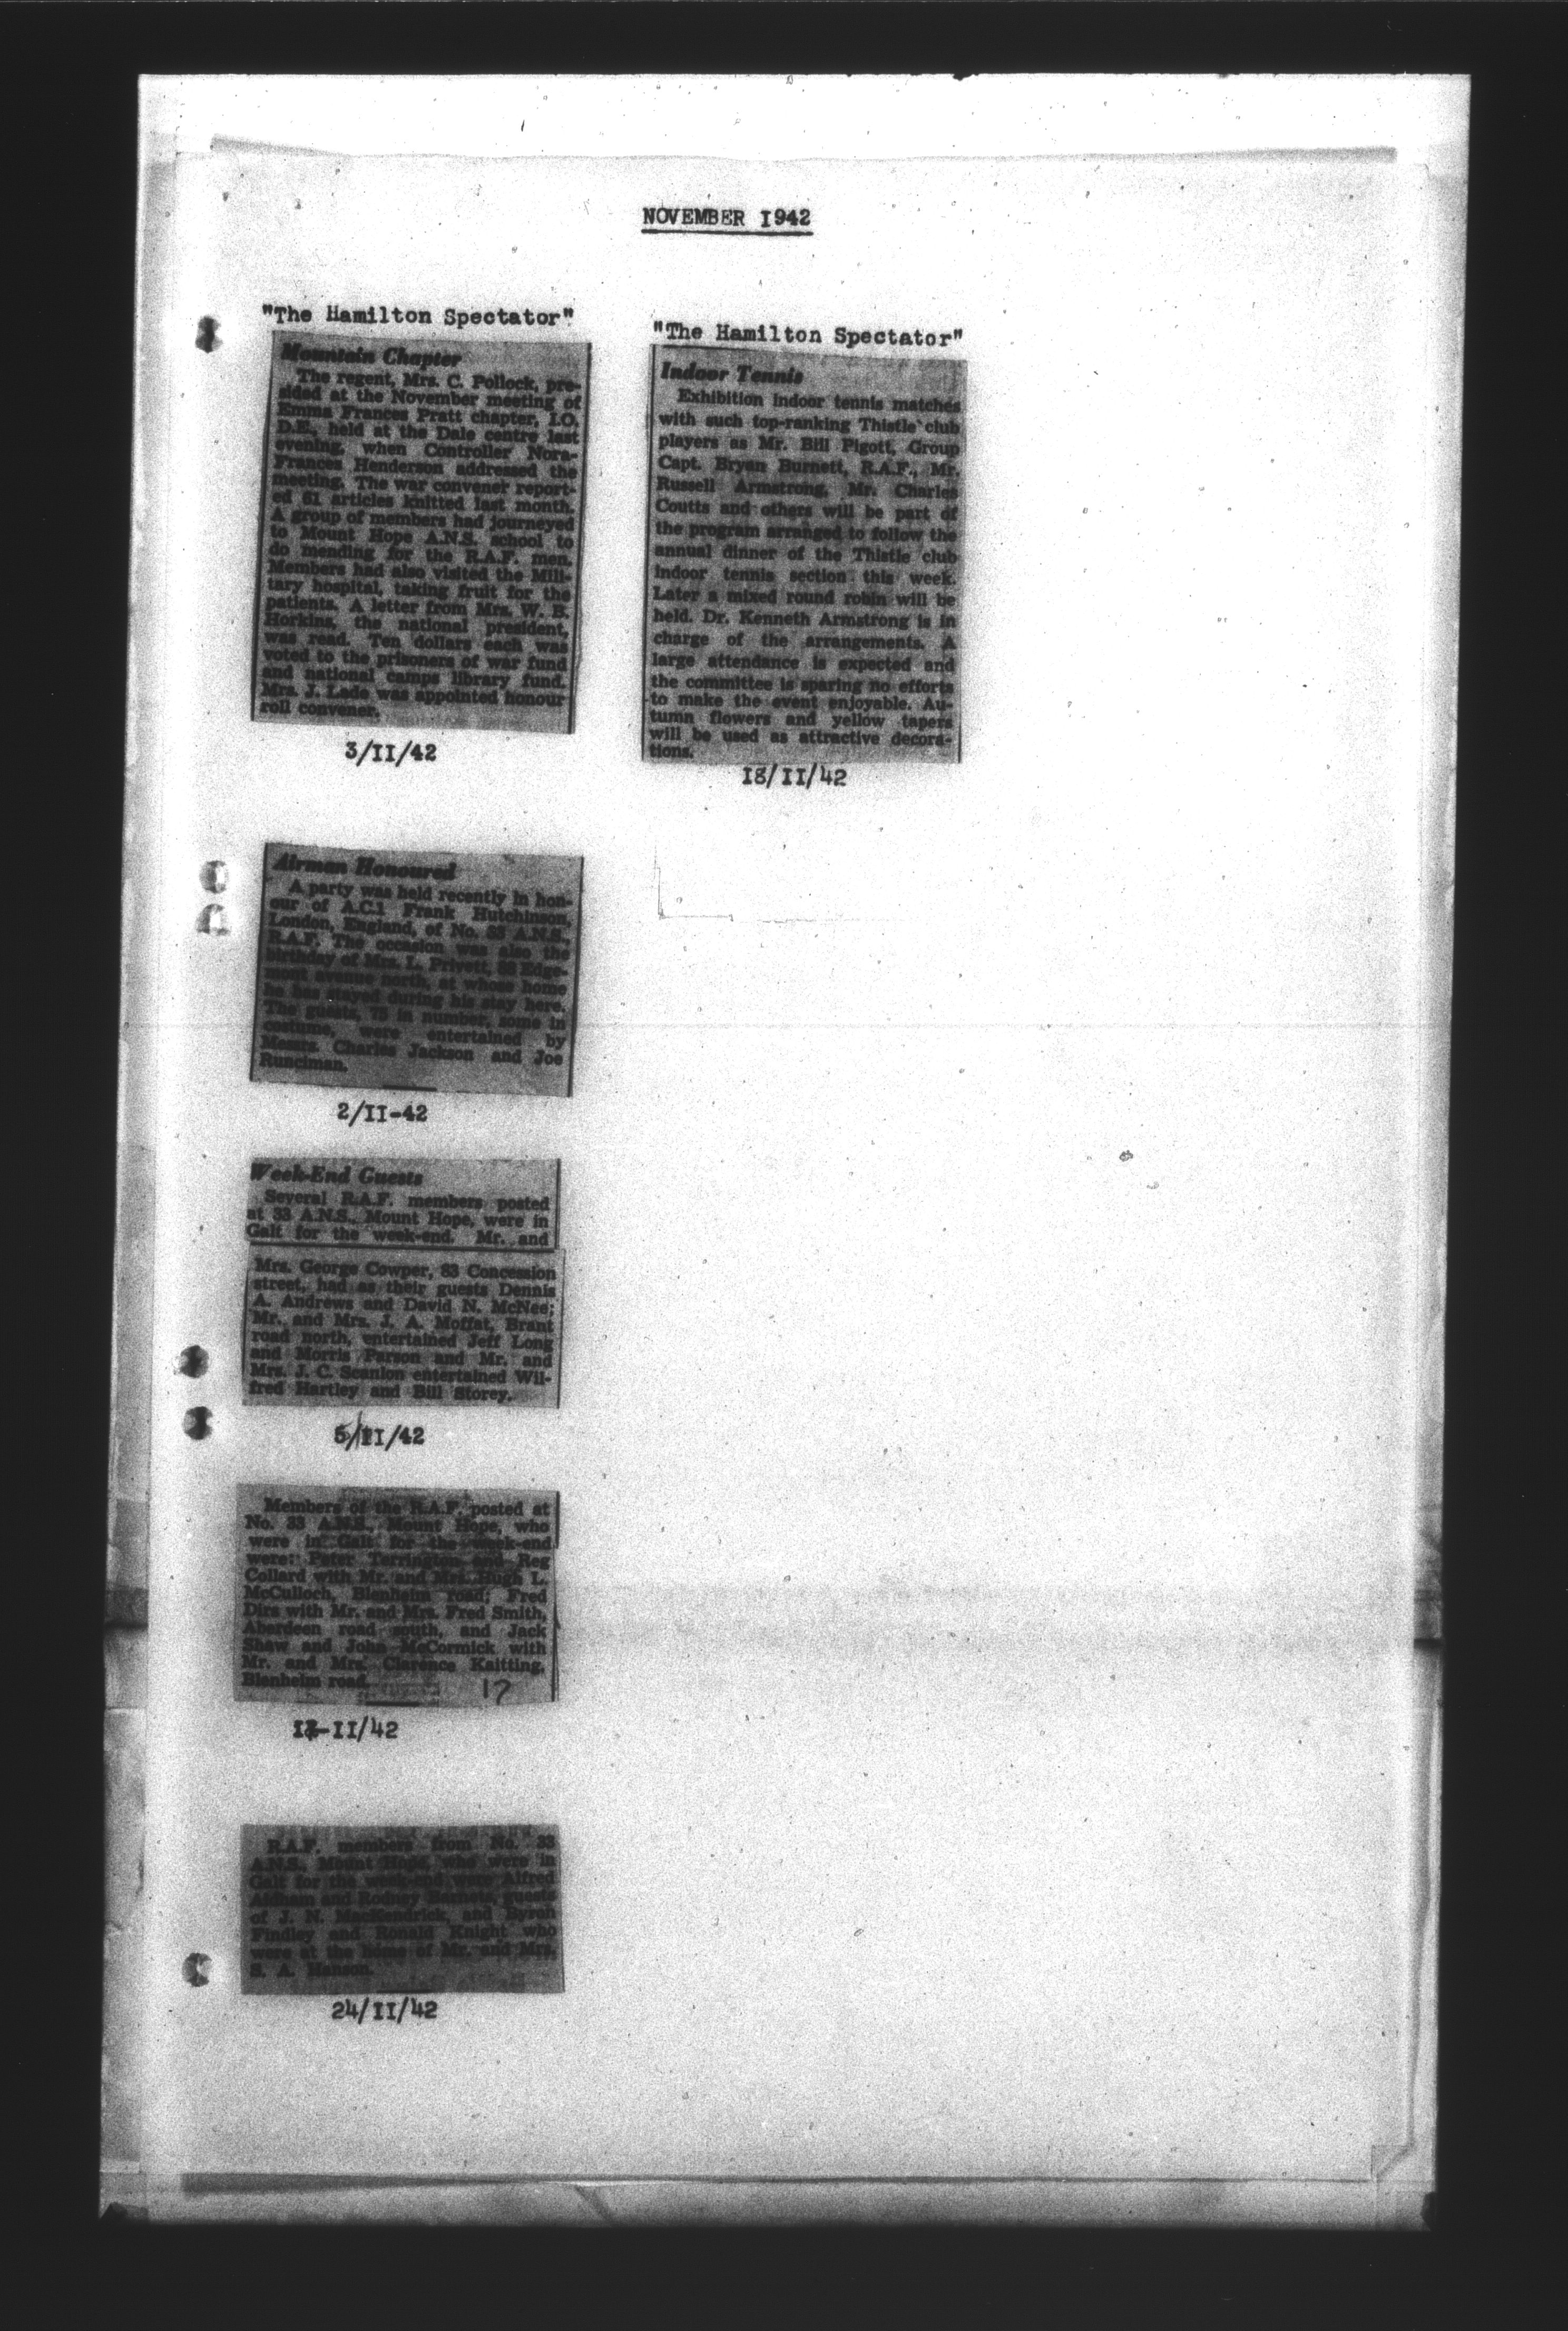 NOVEMBER 1942
"The Hamilton Spectator"
Mountain Chapter
The regent, Mrs. C. Pollock, pre-
sided at the November meeting of
Emma Frances Pratt chapter, I.O.
D.E., held at the Dale centre last
evening, when Controller Nora-
Frances Henderson addressed the
meeting. The war convener report-
ed 61 articles knitted last month.
A group of members had journeyed
to Mount Hope A.N.S. school to
do mending for the R.A.F. men.
Members had also visited the Mili-
tary hospital, taking fruit for the
patients. A letter from Mrs. W. B.
Horkins, the national president,
was read. Ten dollars each was
voted to the prisoners of war fund
and national camps library fund.
Mrs. J. Lade was appointed honour
roll convener.
3/II/42
Airman Honoured
A party was held recently in hon-
our of A.C.1 Frank Hutchinson,
London, England, of No. 33 A.N.S.,
R.A.F. The occasion was also the
birthday of Mrs. L. Privett, Edge-
mont avenue north, at whose home
he has stayed during his stay here.
The guests, 75 in number, some in
costume, were entertained by
Messrs. Charles Jackson and Joe
Runciman.
2/II-42
Week-End Guests
Several R.A.F. members posted
at 33 A.N.S., Mount Hope, were in
Galt for the week-end. Mr. and
Mrs. George Cowper, 83 Concession
street, had as their guests Dennis
A. Andrews and David N. McNee;
Mr. and Mrs. J. A. Moffat, Brant
road north, entertained Jeff Long
and Morris Parson and Mr. and
Mrs. J. C. Scanlon entertained Wil-
fred Hartley and Bill Storey.
5/II/42
Members of the R.A.F. posted at
No. 33 A.N.S., Mount Hope, who
were in Galt for the week-end
were: Peter Terrington and Reg
Collard with Mr. and Mrs. Hugh L.
McCulloch, Blenheim road; Fred
Dirs with Mr. and Mrs. Fred Smith,
Aberdeen road south, and Jack
Shaw and John McCormick with
Mr. and Mrs. Clarence Kaitting,
Blenheim road.
17
-II/42
R.A.F. members from No. 33
A.N.S., Mount Hope, who were in
Galt for the week-end were Alfred
Aldham and Rodney Barnets, guests
of J. N. MacKendrick, and Byron
Findley and Ronald Knight who
were at the home of Mr. and Mrs.
S. A. Manson.
24/II/42
"The Hamilton Spectator"
Indoor Tennis
Exhibition indoor tennis matches
with such top-ranking Thistle club
players as Mr. Bill Pigott, Group
Capt. Bryan Burnett, R.A.F., Mr.
Russell Armstrong, Mr. Charles
Coutts and others will be part of
the program arranged to follow the
annual dinner of the Thistle club
indoor tennis section this week.
Later a mixed round robin will be
held. Dr. Kenneth Armstrong is in
charge of the arrangements. A
large attendance is expected and
the committee is sparing no efforts
to make the event enjoyable. Au-
tumn flowers and yellow tapers
will be used as attractive decora-
tions.
18/II/42